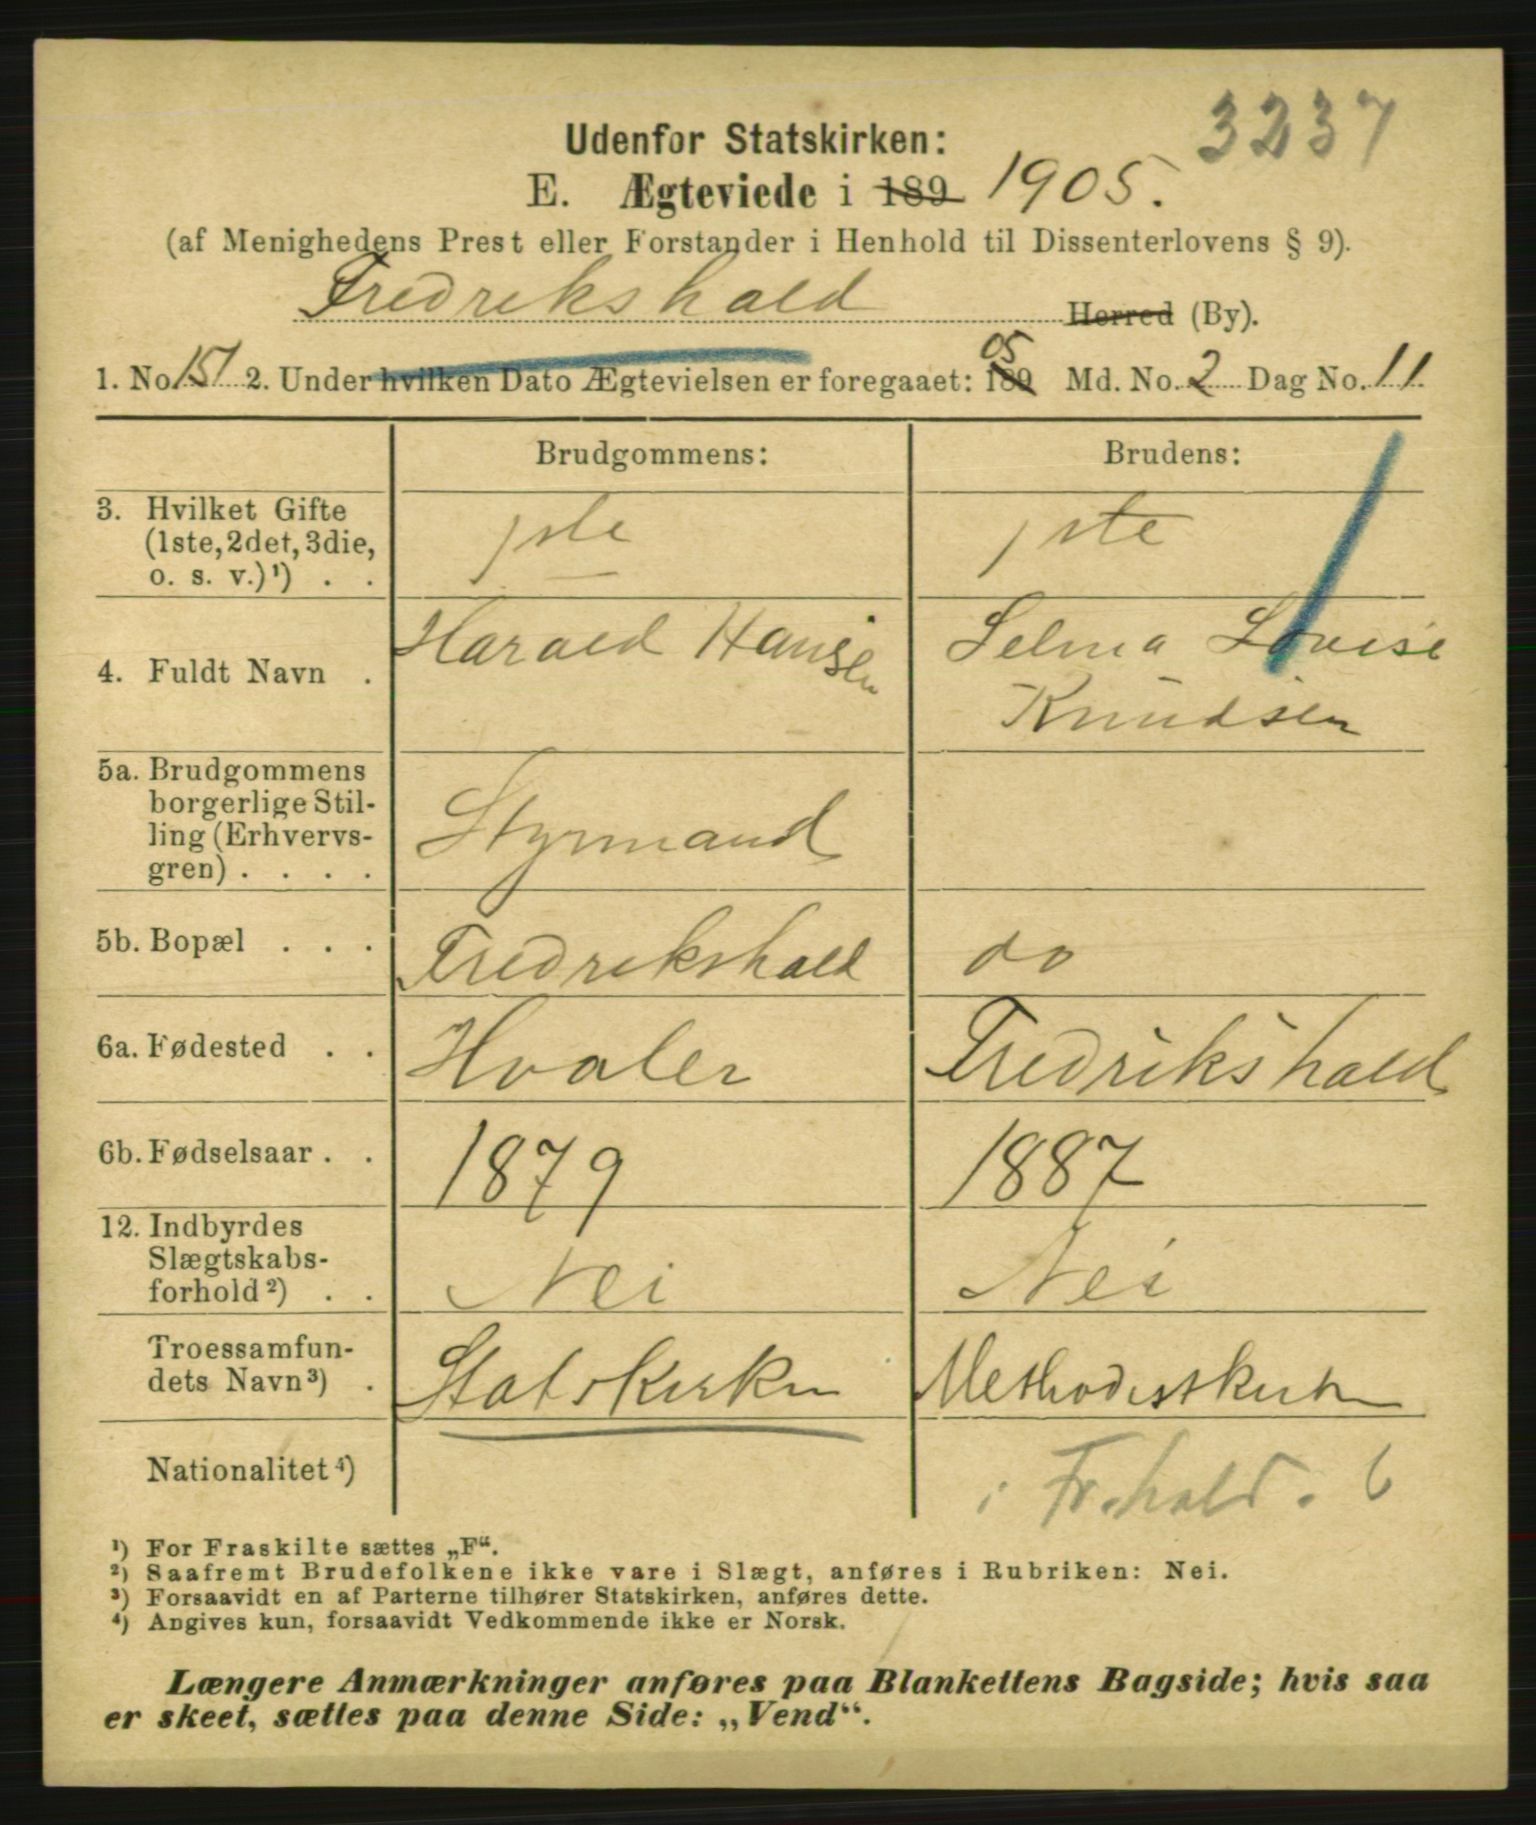 3237
Udenfor Statskirken:
E. Ægteviede i 189 1905.
(af Menighedens Prest eller Forstander i Henhold til Dissenterlovens § 9).
Fredrikshald Herred (By).
1. No. 151 2. Under hvilken Dato Ægtevielsen er foregaaet: 189 05 Md. No. 2 Dag No. 11
Brudgommens: Brudens:
3. Hvilket Gifte
(1ste, 2det, 3die,
o. s. v.)¹) . . 1ste 1ste
4. Fuldt Navn . Harald Hansen Selma Lovise
Knudsen
5a. Brudgommens
borgerlige Stil-
ling (Erhvervs-
gren) . . . . Styrmand
5b. Bopæl . . . Fredrikshald do
6a. Fødested . . Hvaler Fredrikshald
6b. Fødselsaar . . 1879 1887
12. Indbyrdes
Slægtskabs-
forhold ²) . . Nei Nei
Troessamfun-
dets Navn ³) . Statskirken Methodistkirken
Nationalitet ⁴) i Fr.hald. 6
¹) For Fraskilte sættes „F“.
²) Saafremt Brudefolkene ikke vare i Slægt, anføres i Rubriken: Nei.
³) Forsaavidt en af Parterne tilhører Statskirken, anføres dette.
⁴) Angives kun, forsaavidt Vedkommende ikke er Norsk.
Længere Anmærkninger anføres paa Blankettens Bagside; hvis saa
er skeet, sættes paa denne Side: „Vend“.